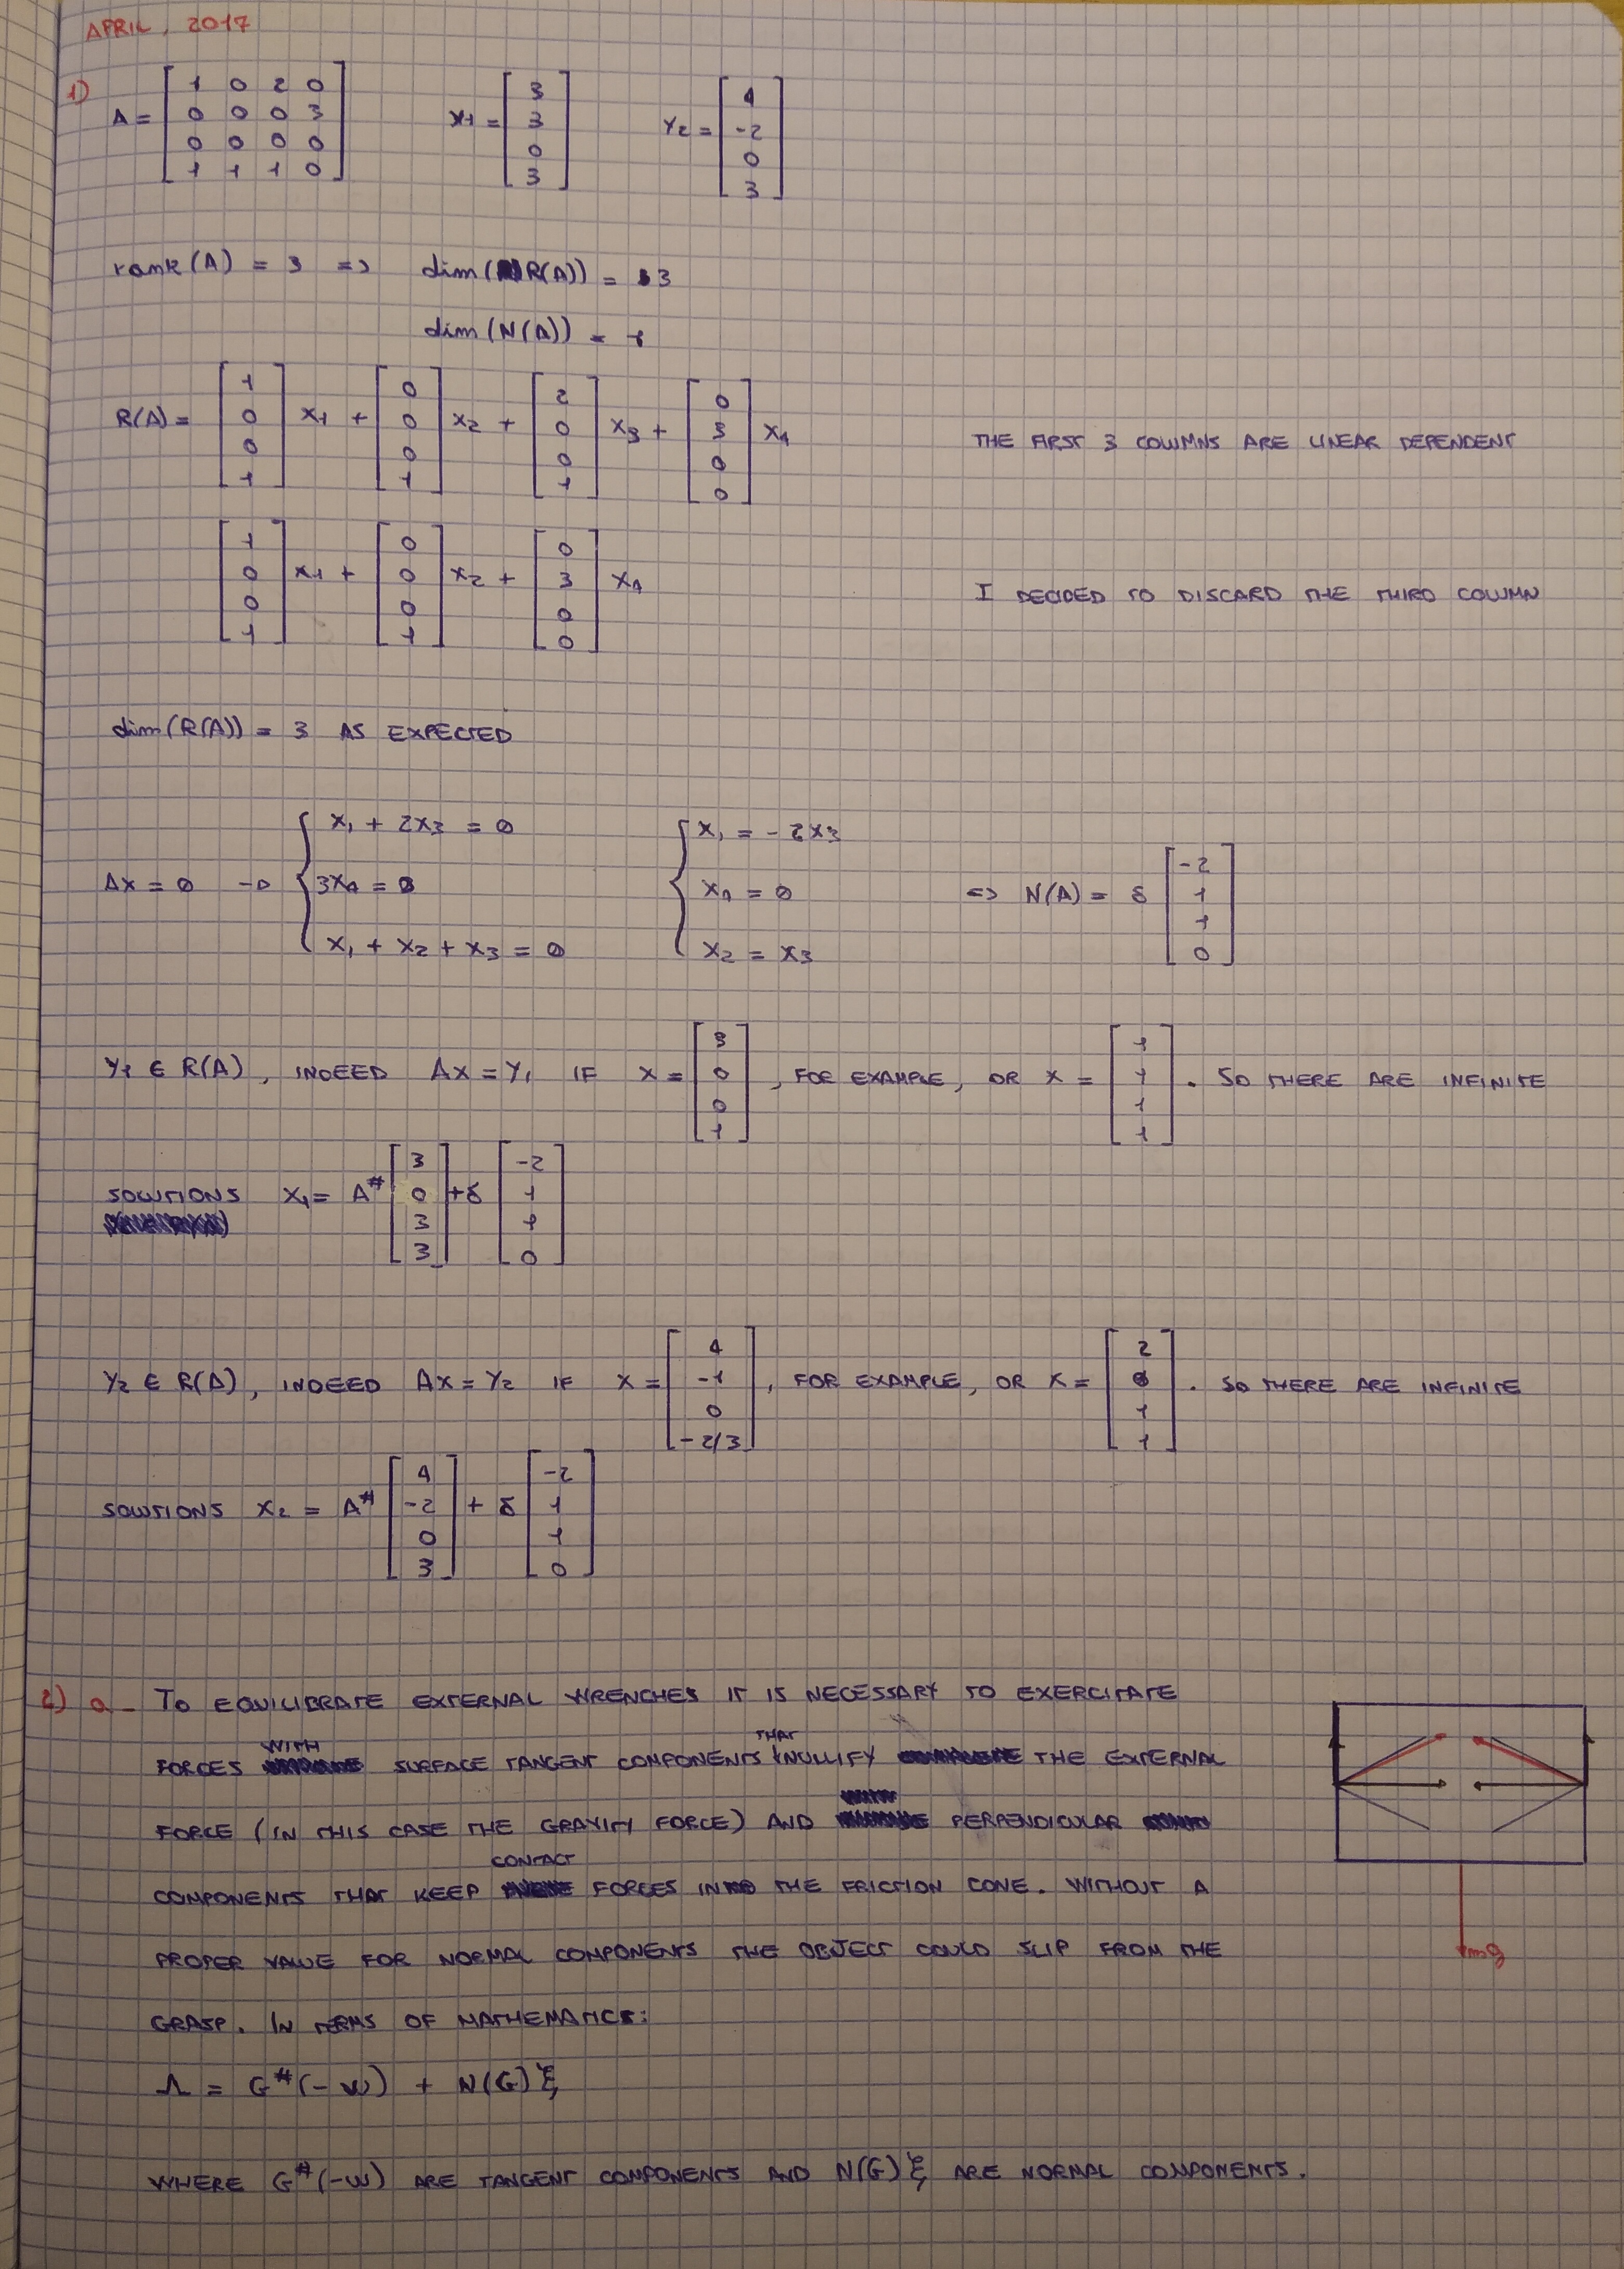 APRIL, 2017
1) A = [1 0 2 0; 0 0 0 3; 0 0 0 0; 1 1 1 0] Y1 = [3; 3; 0; 3] Y2 = [4; -2; 0; 3]
rank(A) = 3 => dim(R(A)) = 3
dim(N(A)) = 1
R(A) = [1; 0; 0; 1] x1 + [0; 0; 0; 1] x2 + [2; 0; 0; 1] x3 + [0; 3; 0; 0] x4 THE FIRST 3 COLUMNS ARE LINEAR DEPENDENT
[1; 0; 0; 1] x1 + [0; 0; 0; 1] x2 + [0; 3; 0; 0] x4 I DECIDED TO DISCARD THE THIRD COLUMN
dim(R(A)) = 3 AS EXPECTED
Ax = 0 → { x1 + 2x3 = 0; 3x4 = 0; x1 + x2 + x3 = 0 { x1 = -2x3; x4 = 0; x2 = x3 => N(A) = δ [-2; 1; 1; 0]
Y1 ∈ R(A), INDEED Ax = Y1 IF x = [3; 0; 0; 1], FOR EXAMPLE, OR x = [1; 1; 1; 1]. SO THERE ARE INFINITE
SOLUTIONS X1 = A# [3; 0; 3; 3] + δ [-2; 1; 1; 0]
Y2 ∈ R(A), INDEED Ax = Y2 IF x = [4; -1; 0; -2/3], FOR EXAMPLE, OR x = [2; 0; 1; 1]. SO THERE ARE INFINITE
SOLUTIONS X2 = A# [4; -2; 0; 3] + δ [-2; 1; 1; 0]
2) a - TO EQUILIBRATE EXTERNAL WRENCHES IT IS NECESSARY TO EXERCITATE
FORCES WITH SURFACE TANGENT COMPONENTS THAT NULLIFY THE EXTERNAL
FORCE (IN THIS CASE THE GRAVITY FORCE) AND PERPENDICULAR
COMPONENTS THAT KEEP CONTACT FORCES IN THE FRICTION CONE. WITHOUT A
PROPER VALUE FOR NORMAL COMPONENTS THE OBJECT COULD SLIP FROM THE
GRASP. IN TERMS OF MATHEMATICS:
Λ = G#(-w) + N(G)ξ
WHERE G#(-w) ARE TANGENT COMPONENTS AND N(G)ξ ARE NORMAL COMPONENTS.
mg